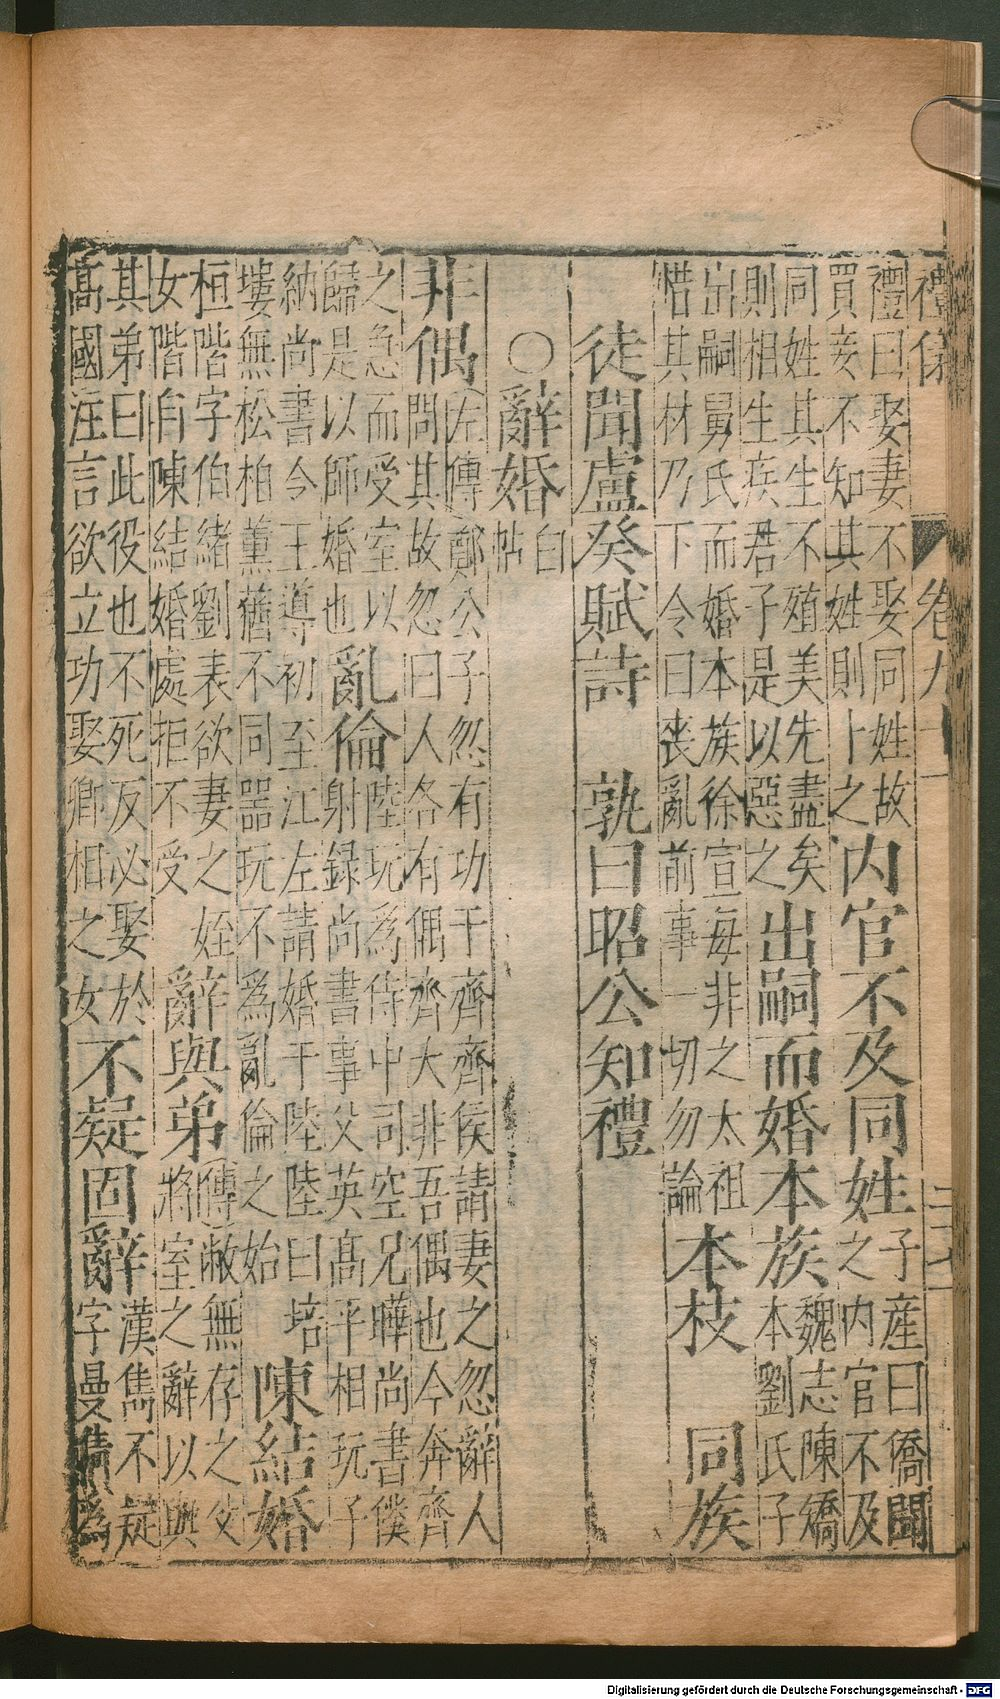 禮儀 卷九十一 二十七
禮曰娶妻不娶同姓故
買妾不知其姓則卜之
内官不及同姓
子産曰僑聞
之内官不及
同姓其生不殖美先盡矣
則相生疾君子是以惡之
出嗣而婚本族
魏志陳矯
本劉氏子
出嗣舅氏而婚本族徐宣每非之太祖
惜其材乃下令曰喪亂前事一切勿論
本枝 同族
徒聞盧癸賦詩 孰曰昭公知禮
○辭婚
白
帖
非偶
左傳鄭公子忽有功于齊齊侯請妻之忽辭人
問其故忽曰人各有偶齊大非吾偶也今奔齊
之急而受室以
歸是以師婚也
亂倫
陸玩為侍中司空兄曄尚書僕
射録尚書事父英高平相玩子
納尚書令王導初至江左請婚于陸陸曰培
塿無松柏薰蕕不同器玩不為亂倫之始
陳結婚
桓階字伯緒劉表欲妻之姪
女階自陳結婚處拒不受
辭與弟
傳敝無存之父
將室之辭以與
其弟曰此役也不死反必娶於
高國注言欲立功娶卿相之女
不疑固辭
漢雋不疑
字曼倩為
Digitalisierung gefördert durch die Deutsche Forschungsgemeinschaft - DFG